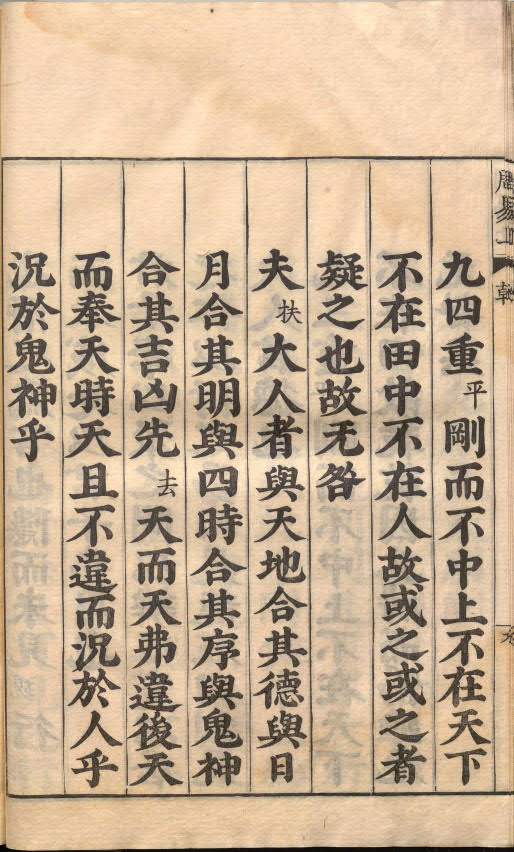 周易上 乾
九四重平剛而不中上不在天下
不在田中不在人故或之或之者
疑之也故无咎
夫扶大人者與天地合其德與日
月合其明與四時合其序與鬼神
合其吉凶先去天而天弗違後天
而奉天時天且不違而況於人乎
況於鬼神乎